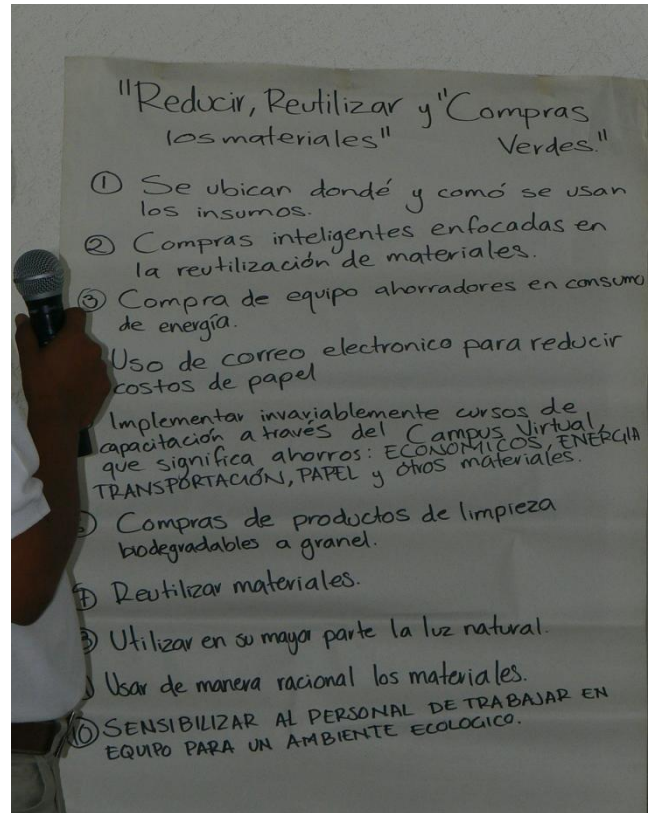 "Reducir, Reutilizar y "Compras
los materiales" Verdes."
① Se ubican dondé y comó se usan
los insumos.
② Compras inteligentes enfocadas en
la reutilización de materiales.
③ Compra de equipo ahorradores en consumo
de energía.
Uso de correo electronico para reducir
costos de papel
Implementar invariablemente cursos de
capacitación a través del Campus Virtual,
que significa ahorros: ECONOMICOS, ENERGIA
TRANSPORTACIÓN, PAPEL y otros materiales.
Compras de productos de limpieza
biodegradables a granel.
⑦ Reutilizar materiales.
⑧ Utilizar en su mayor parte la luz natural.
Usar de manera racional los materiales.
⑩ SENSIBILIZAR AL PERSONAL DE TRABAJAR EN
EQUIPO PARA UN AMBIENTE ECOLOGICO.